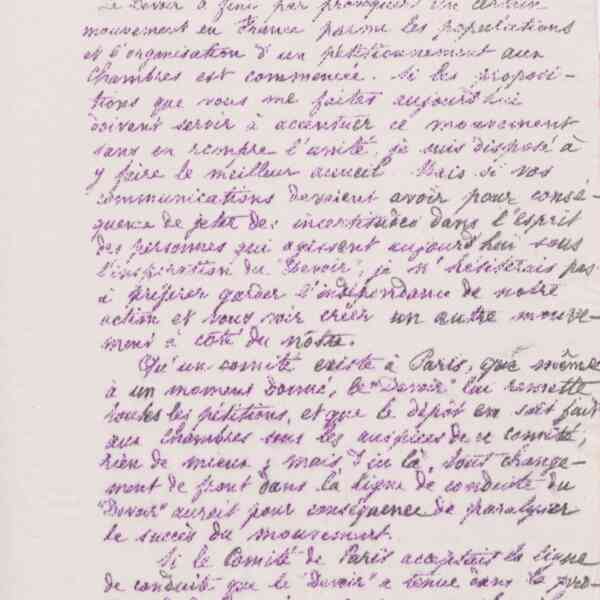 Le Devoir a fini par provoquer un certain
mouvement en France parmi les populations
et l'organisation d'un pétitionnement aux
Chambres est commencée. Si les proposi-
tions que vous me faites aujourd'hui
doivent servir à accentuer ce mouvement
sans en rompre l'unité, je suis disposé à
y faire le meilleur accueil. Mais si vos
communications devaient avoir pour consé-
quence de jeter des incertitudes dans l'esprit
des personnes qui agissent aujourd'hui sous
l'inspiration du "Devoir", je n'hésiterais pas
à préférer garder l'indépendance de notre
action et vous voir créer un autre mouve-
ment à côté du nôtre.
Qu'un comité existe à Paris, que même
à un moment donné, le "Devoir" lui remette
toutes les pétitions, et que le dépôt en soit fait
aux Chambres sous les auspices de ce comité,
rien de mieux; mais d'ici là, tout change-
ment de front dans la ligne de conduite du
"Devoir" aurait pour conséquence de paralyser
le succès du mouvement.
Si le Comité de Paris acceptait la ligne
de conduite que le "Devoir" a tenue dans la pro-